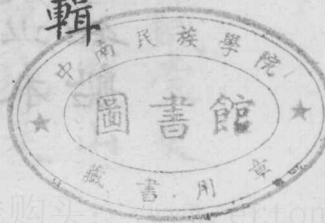 輯
中南民族學院
圖書館
藏書用章